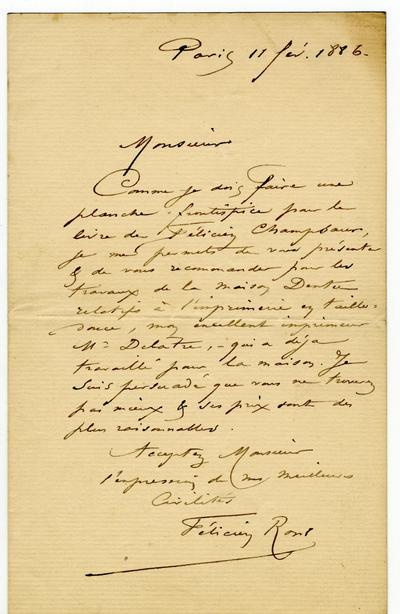 Paris 11 fév. 1886.
Monsieur
Comme je dois faire une
planche-frontispice pour le
livre de Félicien Champsaur,
je me permets de vous présenter
& de vous recommander pour les
travaux de la maison Dentu
relatifs à l'imprimerie en taille-
douce, mon excellent imprimeur
Mr Delatre, - qui a déja
travaillé pour la maison. Je
suis persuadé que vous ne trouverez
pas mieux & ses prix sont des
plus raisonnables.
Acceptez Monsieur
l'expression de mes meilleures
Civilités
Félicien Rops